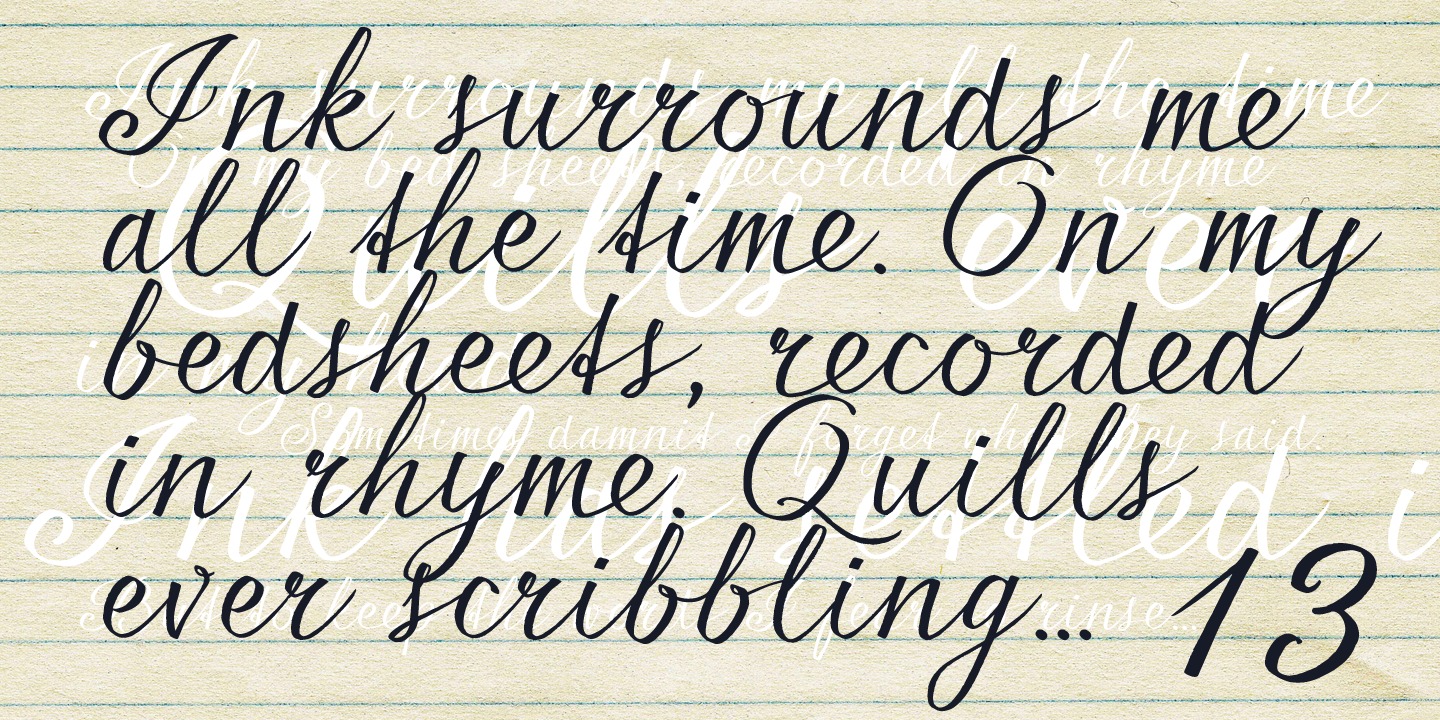 Ink surrounds me
all the time. On my
bedsheets, recorded
in rhyme. Quills
ever scribbling... 13
Ink surrounds me all the time
On my bed sheets, recorded in rhyme
Quills ever
in my head
Sometimes damnit I forget what they said
Ink has settled i
rinse...